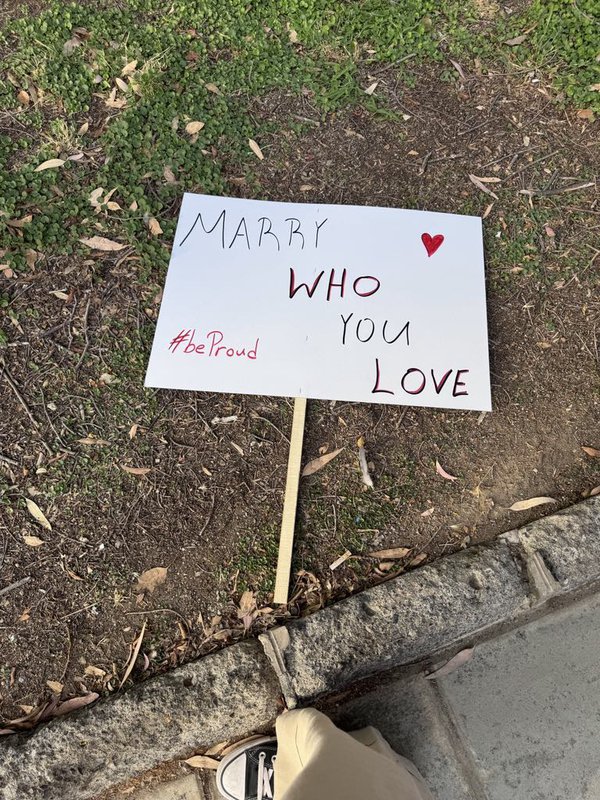 MARRY
WHO
YOU
LOVE
#beProud